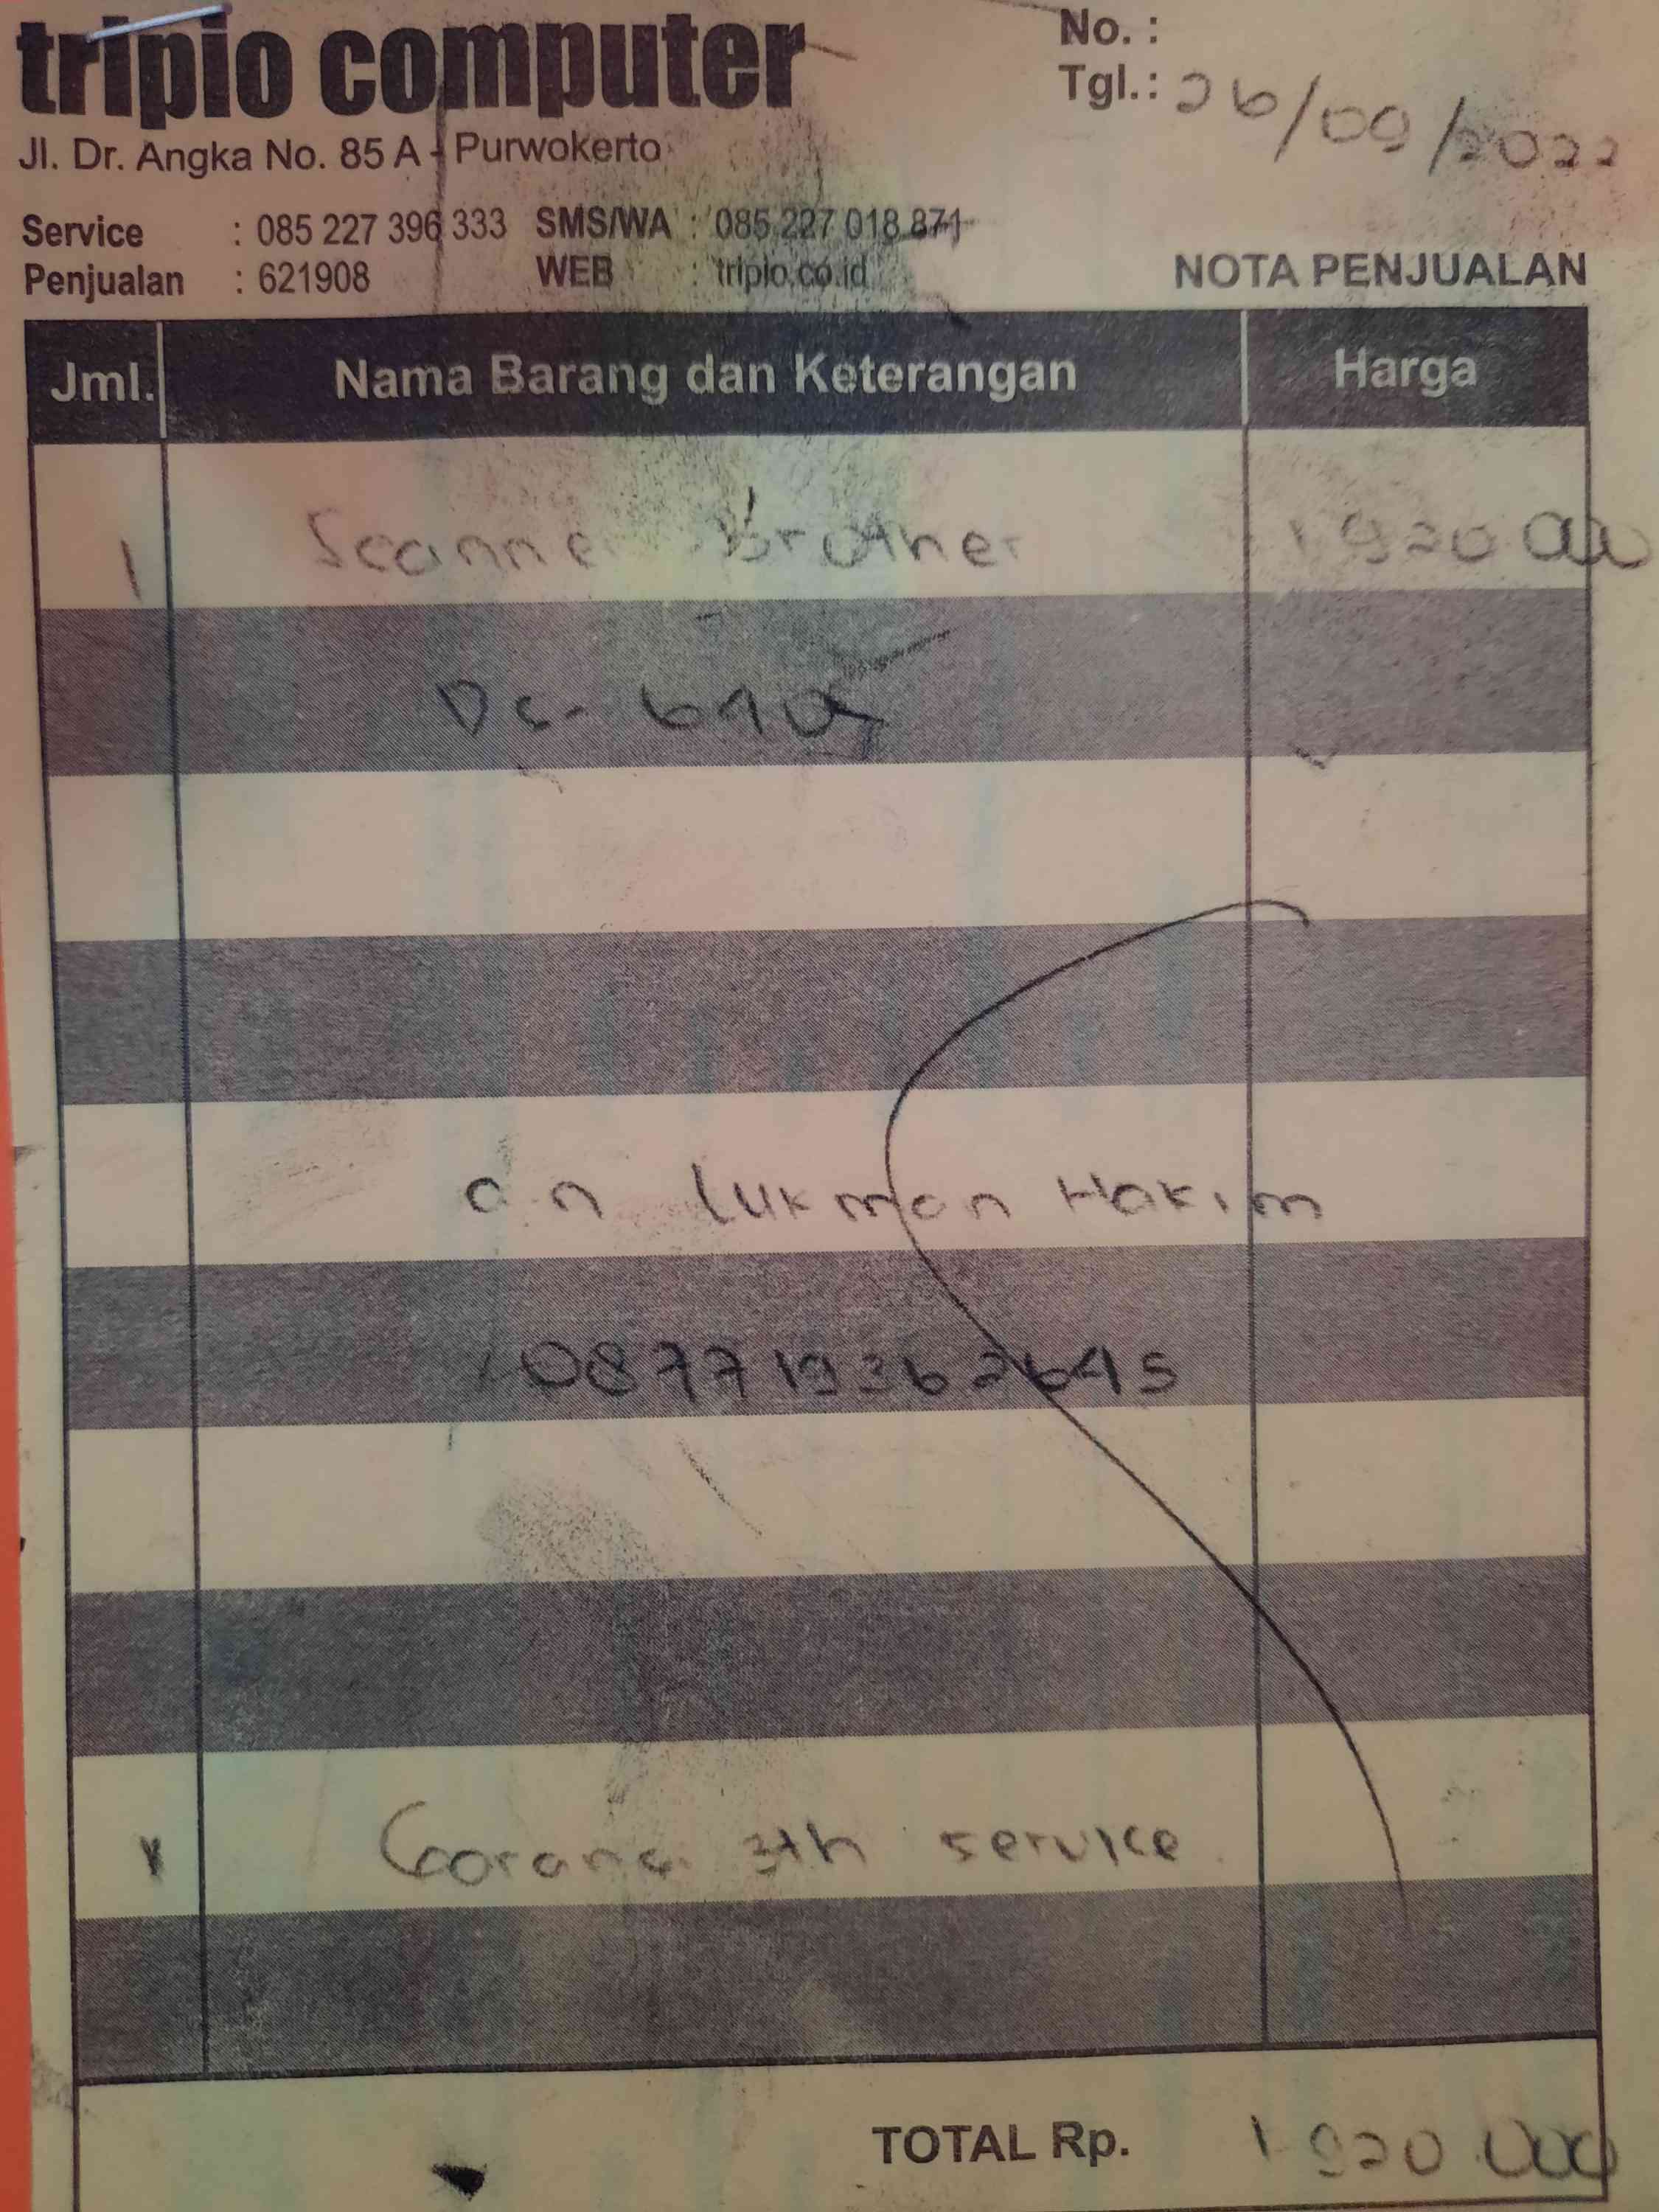 tripio computer
No. :
Tgl.: 26/09/2022
Jl. Dr. Angka No. 85 A - Purwokerto
Service : 085 227 396 333 SMS/WA : 085 227 018 871
Penjualan : 621908 WEB : tripio.co.id
NOTA PENJUALAN
Jml. Nama Barang dan Keterangan Harga
1 Scanner Brother 1 920 000
Ds-
a.n Lukman Hakim
087719362645
* Garansi 3th service
TOTAL Rp. 1 920 000